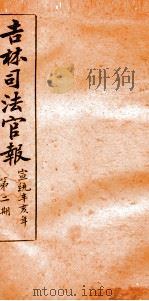 吉林司法官報
宣統辛亥年
第二期
读研
mtoou.info